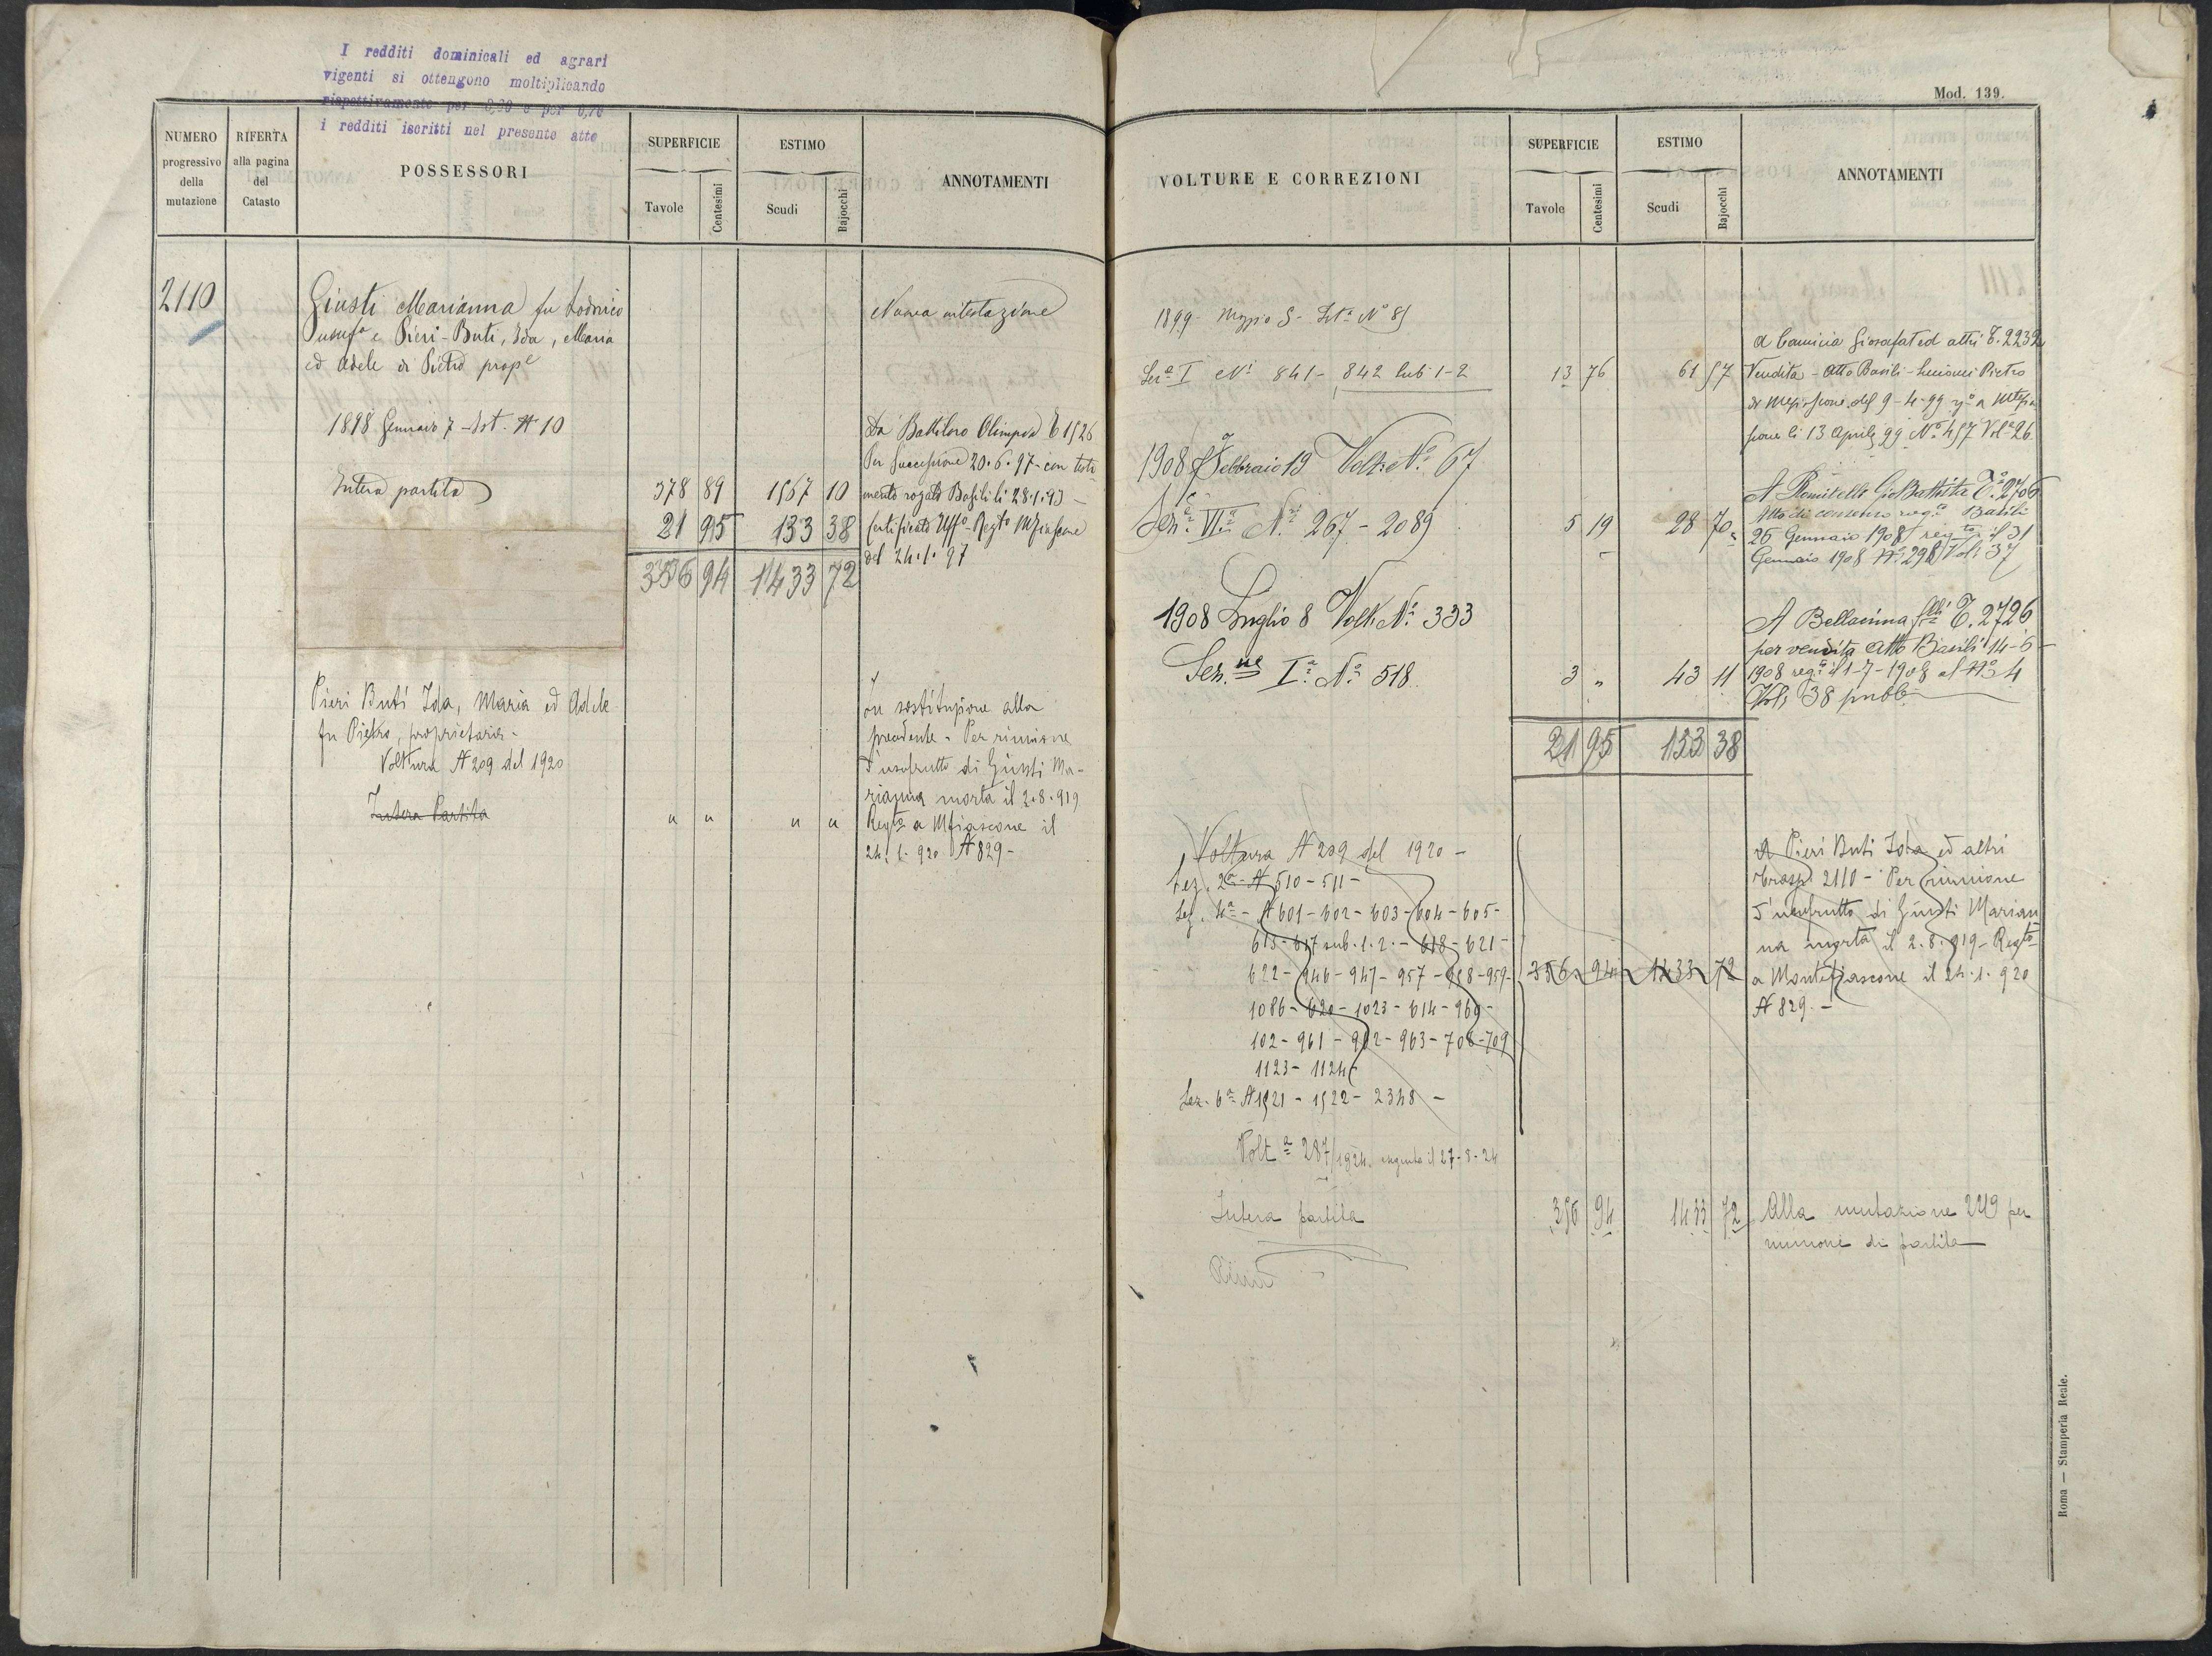 I redditi dominicali ed agrari
vigenti si ottengono moltiplicando
rispettivamente per e per
i redditi iscritti nel presente atto
NUMERO
progressivo
della
mutazione
RIFERTA
alla pagina
del
Catasto
POSSESSORI
SUPERFICIE
Tavole
Centesimi
ESTIMO
Scudi
Bajocchi
ANNOTAMENTI
2110
Giusti Marianna fu Lodovico
Usuf.a e Pieri-Buti, Ida, Maria
ed Adele di Pietro prop.e
Nuova intestazione
1898 Gennaio 7 - Ist. N 10
Da Battiloro Olimpia T 1526
Per Successione 20.6.97 - con testa
Intera partita
378 89 1567 10
mento rogato Basili li 28.1.93 -
21 95 133 38
certificato Uff.o Reg.to Mfiascone
del 24.1.97
356 94 1433 72
Pieri Buti Ida, Maria ed Adele
fu Pietro, proprietarie -
Voltura N 209 del 1920
Intera Partita
" " " "
In sostituzione alla
precedente - Per riunione
d'usufrutto di Giusti Ma-
rianna morta il 2.8.919
Reg.ta a Mfiascone il
24.1.920 N 829 -
Mod. 139.
VOLTURE E CORREZIONI
SUPERFICIE
Tavole
Centesimi
ESTIMO
Scudi
Bajocchi
ANNOTAMENTI
1899 - Maggio 5 - Ist.a N° 85
Sez.e I Ni 841 - 842 sub 1-2
13 76 61 57
A Camicia Giosafat ed altri T. 2232
Vendita - Atto Basili
del 9-4-99
li 13 Aprile 99 N° 457 Vol.e 26
1908 Febbraio 19 Volt. N° 67
Sez.e VI.a Ni 267 - 2089
5 19 28 70
A Romitelli Gio Battista T.o 2706
Atto di consenso rog.o Basili
26 Gennaio 1908 reg.to il 31
Gennaio 1908 N° 298 Vol. 37
1908 Luglio 8 Volt. N° 333
Sez.ne I.a N° 518
3 " 43 11
A Bellacima f.lli T. 2726
per vendita Atto Basili 14-6-
1908 reg.o il 1-7-1908 al N° 4
Vol. 38 pubb.
21 95 133 38
Voltura N 209 del 1920 -
Sez. 2a - N 510 - 511 -
Sez. 4a - N 601 - 602 - 603 - 604 - 605 -
615 - 617 sub. 1. 2. - 618 - 621 -
622 - 946 - 947 - 957 - 958 - 959 -
1086 - 620 - 1023 - 614 - 960 -
102 - 961 - 962 - 963 - 708 - 709
1123 - 1124 -
Sez. 6a N 1521 - 1522 - 2348 -
356 94 1433 72
A Pieri Buti Ida ed altri
Trasp. 2110 - Per riunione
d'usufrutto di Giusti Marian
na morta il 2.8.919 - Reg.to
a Montefiascone il 24.1.920
N 829. -
Volt.a 287/1924. eseguita il 27-8-24
Intera partita
356 94 1433 72
Alla mutazione 2219 per
riunione di partita
Roma — Stamperia Reale.